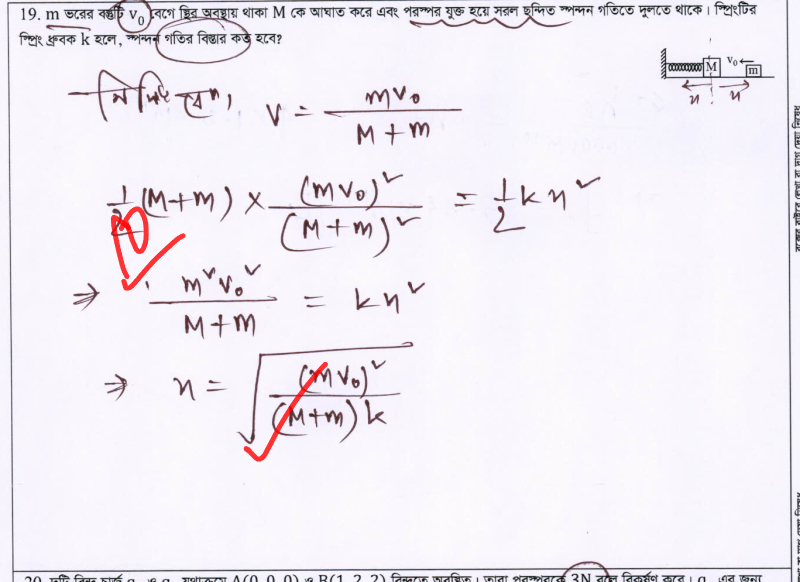 19. m ভরের বস্তুটি v₀ বেগে স্থির অবস্থায় থাকা M কে আঘাত করে এবং পরস্পর যুক্ত হয়ে সরল ছন্দিত স্পন্দন গতিতে দুলতে থাকে। স্প্রিংটির
স্প্রিং ধ্রুবক k হলে, স্পন্দন গতির বিস্তার কত হবে?
M v₀ m
x x
v = mv₀ / (M+m)
1/2 (M+m) × (mv₀)² / (M+m)² = 1/2 kx²
⇒ m²v₀² / (M+m) = kx²
⇒ x = √((mv₀)² / ((M+m)k))
20. দুটি বিন্দু চার্জ q₁ ও q₂ যথাক্রমে A(0, 0, 0) ও B(1, 2, 2) বিন্দুতে অবস্থিত। তারা পরস্পরকে 3N বলে বিকর্ষণ করে। q₁ এর জন্য